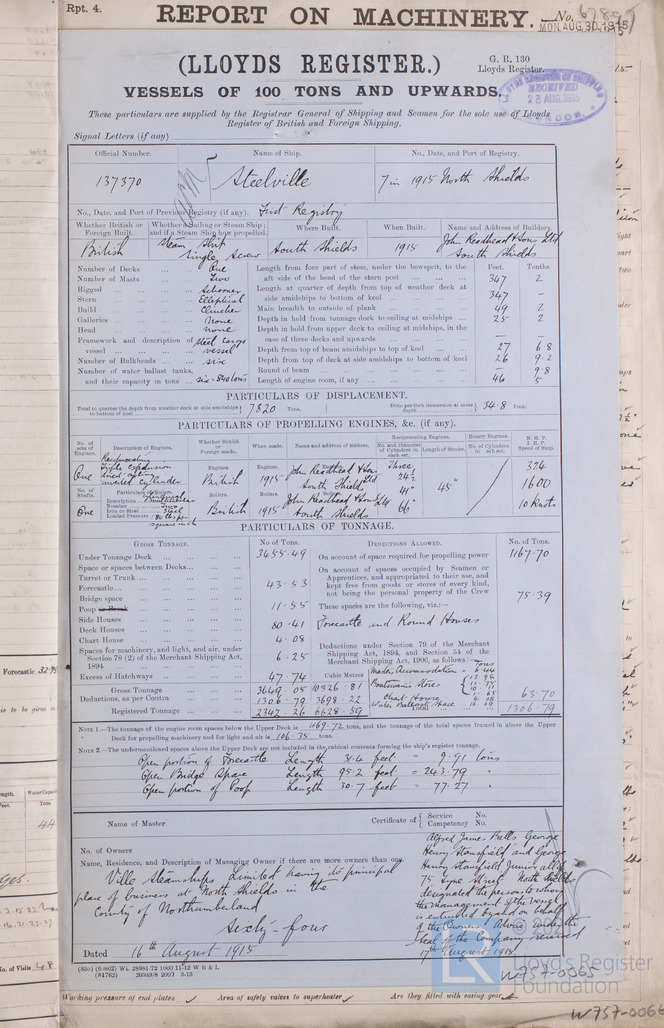 Rpt. 4.
REPORT ON MACHINERY.
No.
MON. AUG. 30. 1915
(LLOYDS REGISTER.)
G. R. 130
Lloyds Register.
VESSELS OF 100 TONS AND UPWARDS.
RECEIVED
These particulars are supplied by the Registrar General of Shipping and Seamen for the sole use of Lloyds
Register of British and Foreign Shipping.
Signal Letters (if any)
Official Number. Name of Ship. No., Date, and Port of Registry.
137370 Steelville 7 in 1915 North Shields
No., Date, and Port of Previous Registry (if any). First Registry
Whether British or Foreign Built. Whether a Sailing or Steam Ship; and if a Steam Ship how propelled. Where Built. When Built. Name and Address of Builders.
British Steam Ship Single Screw South Shields 1915 John Readhead & Sons Ltd South Shields
Number of Decks One
Number of Masts Two
Rigged Schooner
Stern Elliptical
Build Clincher
Galleries None
Head None
Framework and description of vessel Steel Cargo vessel
Number of Bulkheads Six
Number of water ballast tanks, and their capacity in tons Six = 840 tons
Feet. Tenths.
Length from fore part of stem, under the bowsprit, to the aft side of the head of the stern post 347 2
Length at quarter of depth from top of weather deck at side amidships to bottom of keel 347 –
Main breadth to outside of plank 49 2
Depth in hold from tonnage deck to ceiling at midships 25 2
Depth in hold from upper deck to ceiling at midships, in the case of three decks and upwards –
Depth from top of beam amidships to top of keel 27 6.8
Depth from top of deck at side amidships to bottom of keel 26 9.2
Round of beam – 9.8
Length of engine room, if any 46 5
PARTICULARS OF DISPLACEMENT.
Total to quarter the depth from weather deck at side amidships to bottom of keel 7820 Tons. Ditto per inch immersion at same depth 34.8 Tons.
PARTICULARS OF PROPELLING ENGINES, &c. (if any).
No. of sets of Engines. Description of Engines. Whether British or Foreign made. When made. Name and address of makers. Reciprocating Engines. Rotary Engines. N. H. P. I. H. P. Speed of Ship.
No. and Diameter of Cylinders in each set. Length of Stroke. No. of Cylinders in each set.
One Reciprocating Triple Expansion direct acting inverted cylinder Engines. British Engines. 1915 John Readhead & Sons Ltd South Shields Three 24½ 45" 324
No. of Shafts. Particulars of Boilers. 1600
One Description Number Two Iron or Steel Steel Loaded Pressure 180 lbs per square inch Boilers. British Boilers. 1915 John Readhead & Sons Ltd South Shields 66" 10 Knots
PARTICULARS OF TONNAGE.
GROSS TONNAGE. No. of Tons. DEDUCTIONS ALLOWED. No. of Tons.
Under Tonnage Deck 3455.49
Space or spaces between Decks
Turret or Trunk
Forecastle 43.53
Bridge space
Poop or Break 11.55
Side Houses
Deck Houses 80.41
Chart House 4.08
Spaces for machinery, and light, and air, under Section 78 (2) of the Merchant Shipping Act, 1894 6.25
Excess of Hatchways 47.74
Gross Tonnage 3649.05
Deductions, as per Contra 1306.79
Registered Tonnage 2342.26
Cubic Metres
10326.81
3698.22
6628.59
On account of space required for propelling power 1167.70
On account of spaces occupied by Seamen or Apprentices, and appropriated to their use, and kept free from goods or stores of every kind, not being the personal property of the Crew 75.39
These spaces are the following, viz.:—
Forecastle and Round Houses
Deductions under Section 79 of the Merchant Shipping Act, 1894, and Section 54 of the Merchant Shipping Act, 1906, as follows:— Tons
Master's Accommodation
Boatswain's Store
Chart House
Water Ballast Space 63.70
Total 1306.79
NOTE 1.—The tonnage of the engine room spaces below the Upper Deck is 469.72 tons, and the tonnage of the total spaces framed in above the Upper Deck for propelling machinery and for light and air is 106.35 tons.
NOTE 2.—The undermentioned spaces above the Upper Deck are not included in the cubical contents forming the ship's register tonnage.
Open portion of Forecastle Length 31.4 feet = 9.91 tons
Open Bridge Space Length 95.2 feet = 243.79 "
Open portion of Poop Length 30.7 feet = 77.27 "
Name of Master Certificate of Service No. Competency No.
No. of Owners
Name, Residence, and Description of Managing Owner if there are more owners than one.
Ville Steamships Limited having its principal
place of business at North Shields in the
County of Northumberland
Sixty-four
Alfred James Balls George
Henry Stansfield and George
Henry Stansfield Junior all of
75 Street North Shields
designated the persons to whom
the management of the vessel
is entrusted by and on behalf
of the Owners. Advice under the
Seal of the Company received
17th August 1915
Dated 16th August 1915
(83c) (93862) Wt. 28981/72 1000 11-12 W B & L
(94762) 26349/8 2007 3-13
W757-0065
Lloyd's Register
Foundation
Working pressure of end plates Area of safety valves to superheater Are they fitted with easing gear
W757-0066
Forecastle
No. of Visits 48